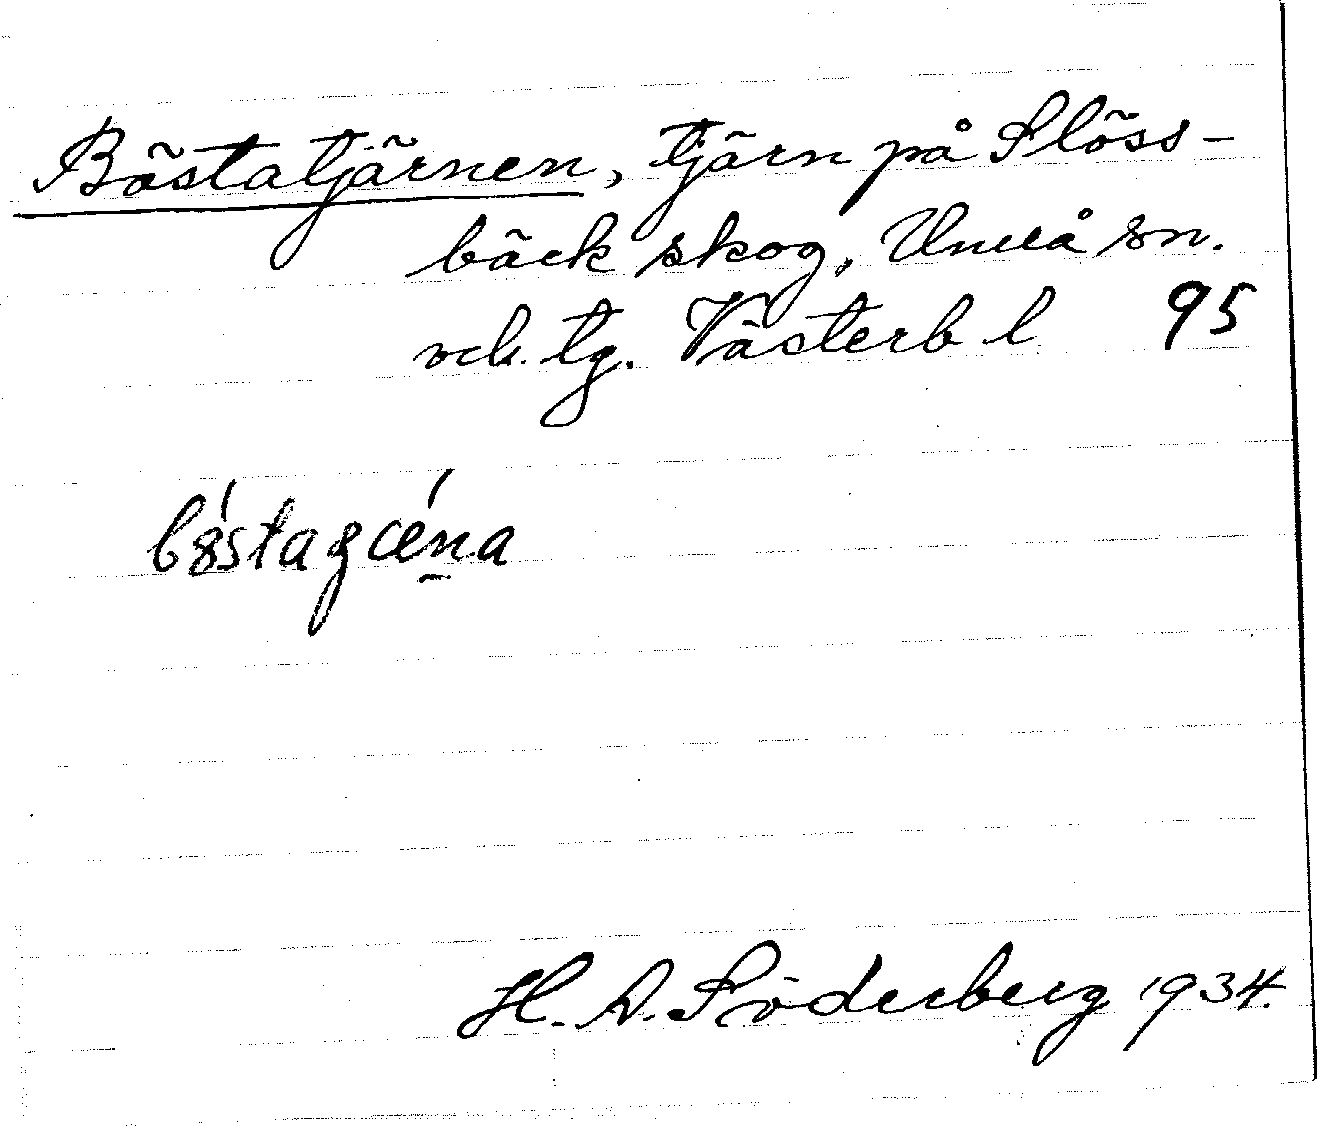 Böstatjärnen, tjärn på Slöss-
bäck skog, Umeå sn.
och tg. Västerb l 95
H. A. Söderberg 1934.